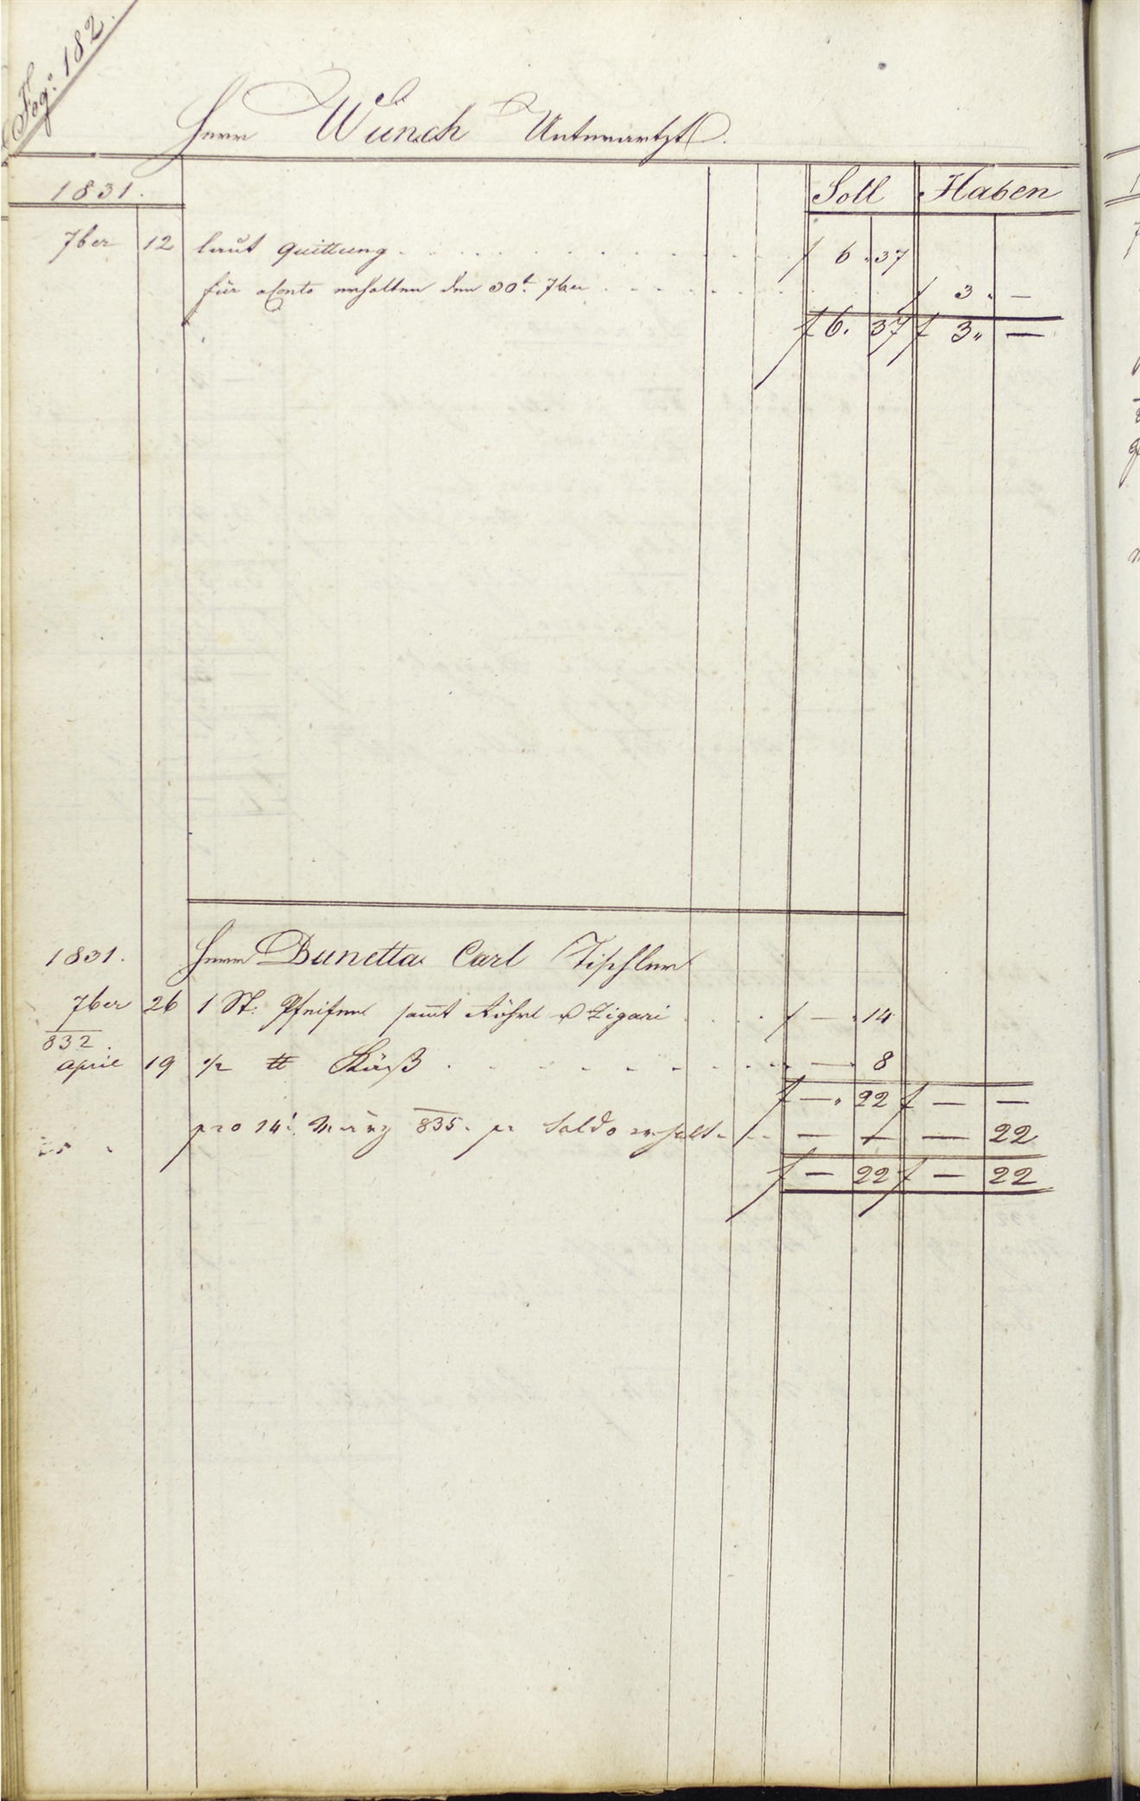 Fog: 182.
Herr Wünsch Unterartzt.
1831. Soll Haben
7ber 12 laut Quittung f 6. 37
für aConto erhalten den 30t. 7ber f 3. —
f 6. 37 f 3. —
1831. Herrn Dunetta Carl Tischler
7ber 26 1 St: Pfeifen samt Röhrl Zigari f — . 14
832.
April 19 ½ ℔ Käß — 8
f — . 22 f — —
pro 14t. März 835. pr Saldo erhalt. — — — 22
f — 22 f — 22